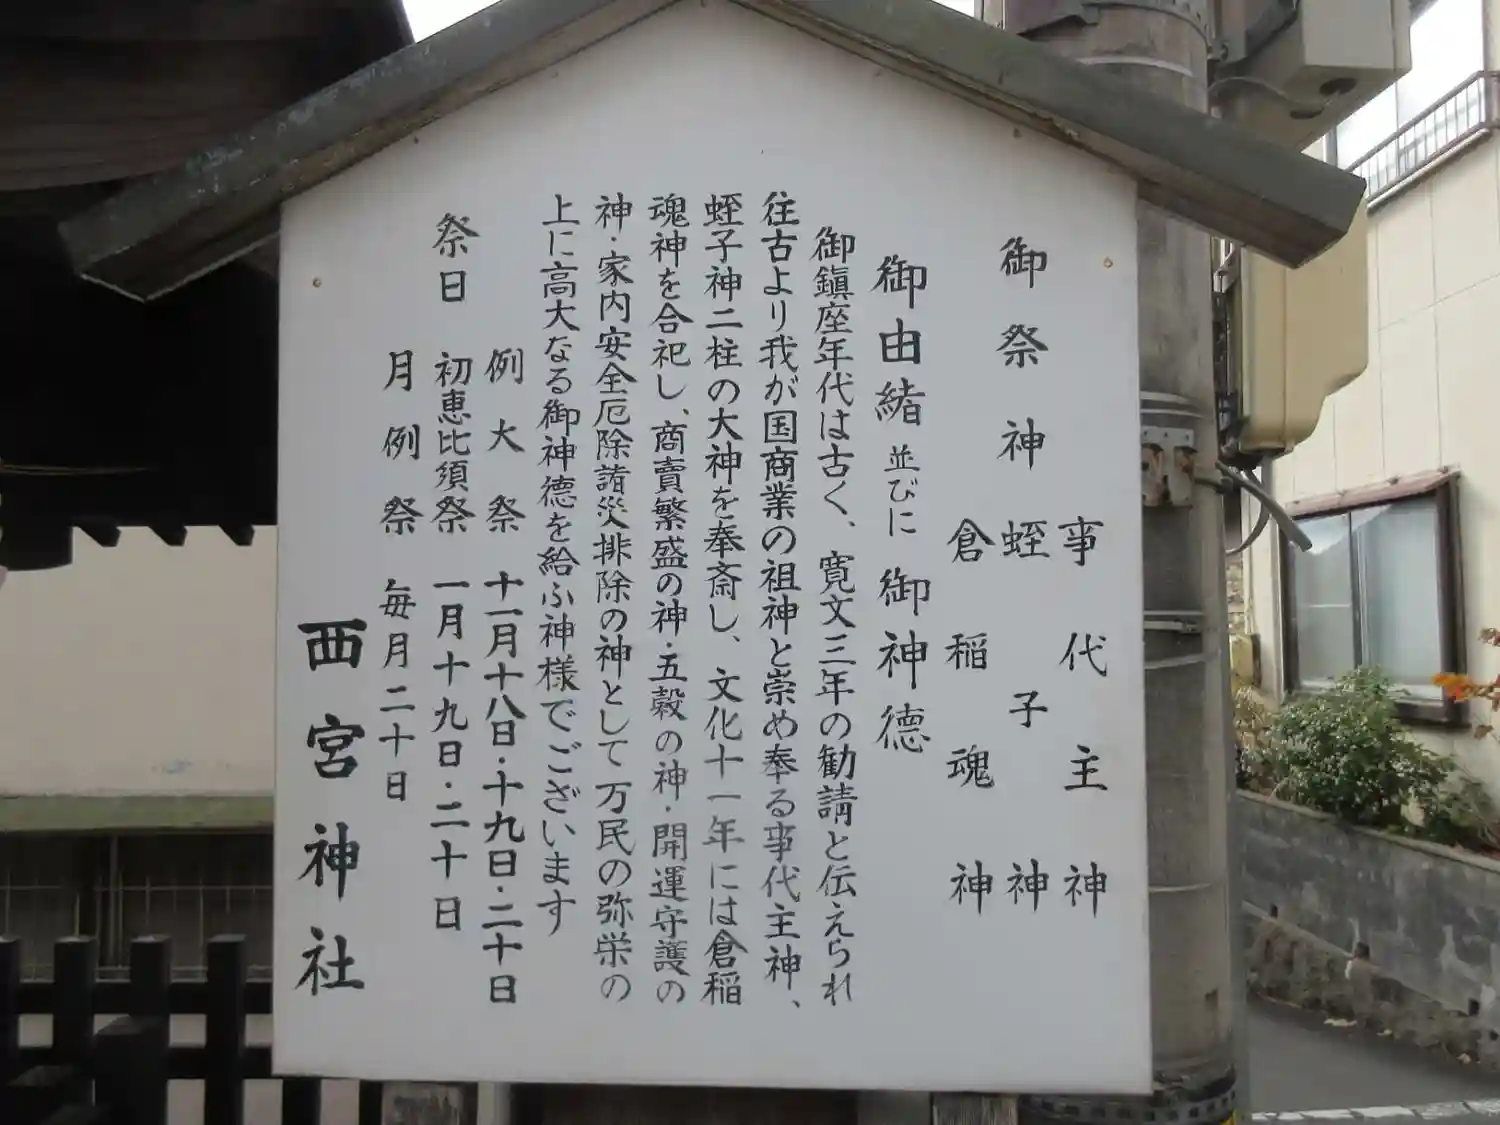 御祭神
事代主神
蛭子神
倉稲魂神
御由緒並びに御神徳
御鎮座年代は古く、寛文三年の勧請と伝えられ
往古より我が国商業の祖神と崇め奉る事代主神、
蛭子神二柱の大神を奉斎し、文化十一年には倉稲
魂神を合祀し、商賣繁盛の神・五穀の神・開運守護の
神・家内安全厄除諸災排除の神として万民の弥栄の
上に高大なる御神徳を給ふ神様でございます
例大祭 十一月十八日・十九日・二十日
祭日 初恵比須祭 一月十九日・二十日
月例祭 毎月二十日
西宮神社